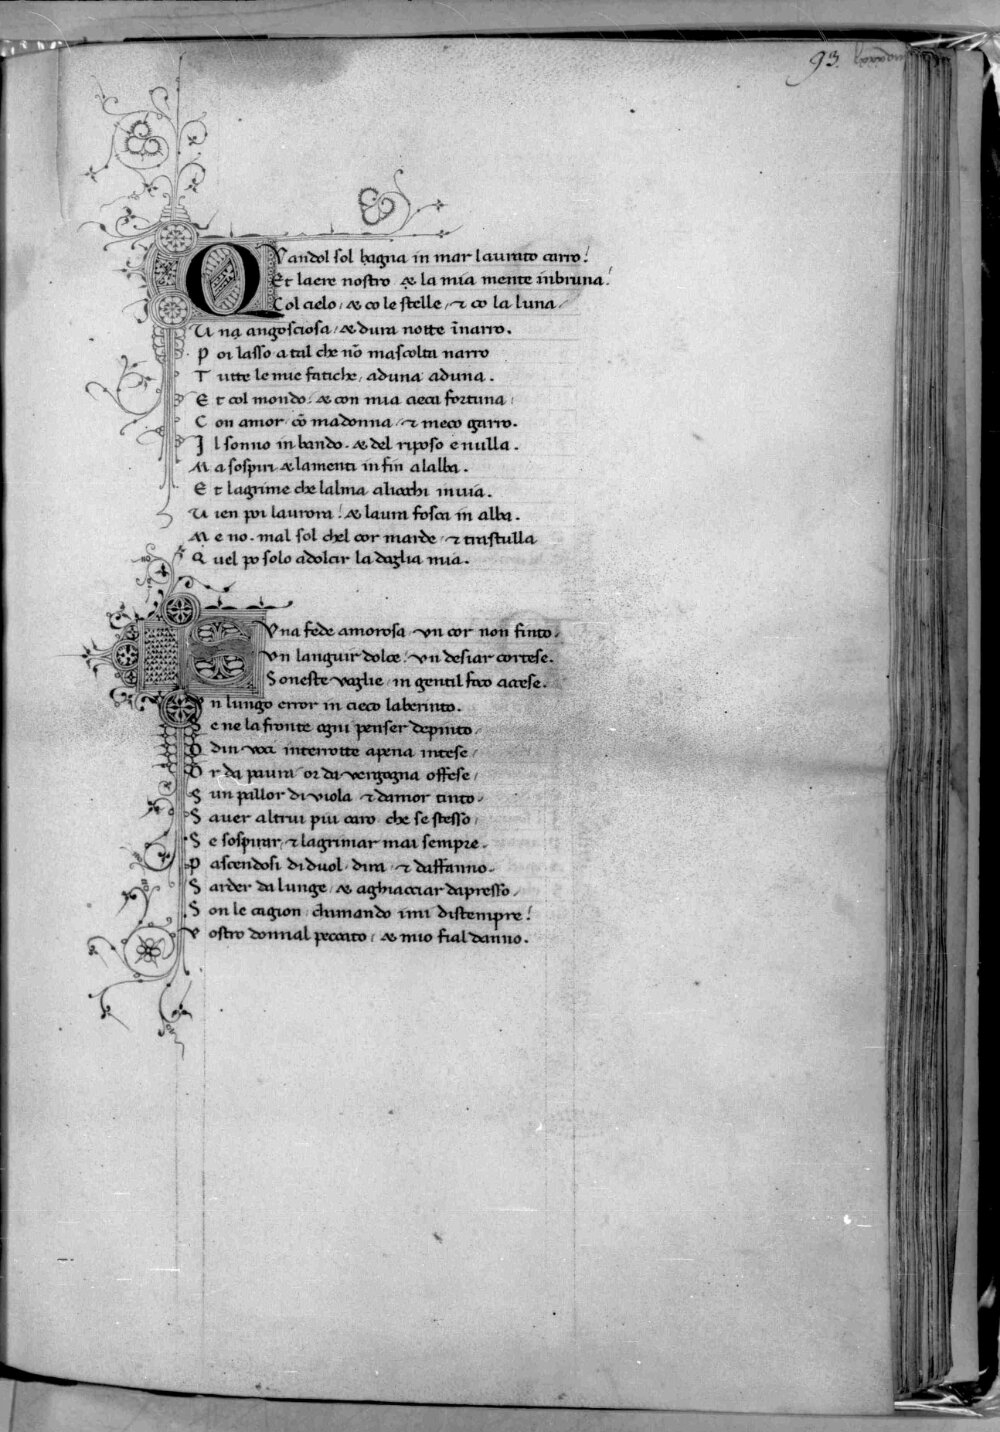 93.
QVandol sol bagna in mar laurato carro!
Et laere nostro & la mia mente inbruna!
Col cielo / & co le stelle / & co la luna /
U na angosciosa / & dura notte īnarro.
P oi lasso a tal che nō mascolta narro
T utte le mie fatiche / aduna aduna.
E t col mondo / & con mia cieca fortuna /
C on amor / cō madonna / & meco garro.
I l sonno in bando. & del riposo e nulla.
M a sospiri & lamenti in fin alalba.
E t lagrime che lalma aliocchi invia.
U ien poi laurora! & laura fosca in alba.
M e no. mal sol chel cor marde / & trastulla
Q uel po solo adolcir la doglia mia.
SVna fede amorosa / un cor non finto.
Vn languir dolce / un desiar cortese.
S oneste voglie / in gentil foco accese.
V n lungo error in cieco laberinto.
S e ne la fronte ogni penser depinto /
O din voci interrotte apena intese /
O r da paura / or da vergogna offese /
S un pallor di viola & damor tinto /
S aver altrui piu caro che se stesso /
S e sospirar / & lagrimar mai sempre.
P ascendosi di duol / dira / & daffanno.
S arder da lunge / & aghiacciar dapresso /
S on le cagion / chamando i mi distempre!
V ostro donnal peccato / & mio fial danno.